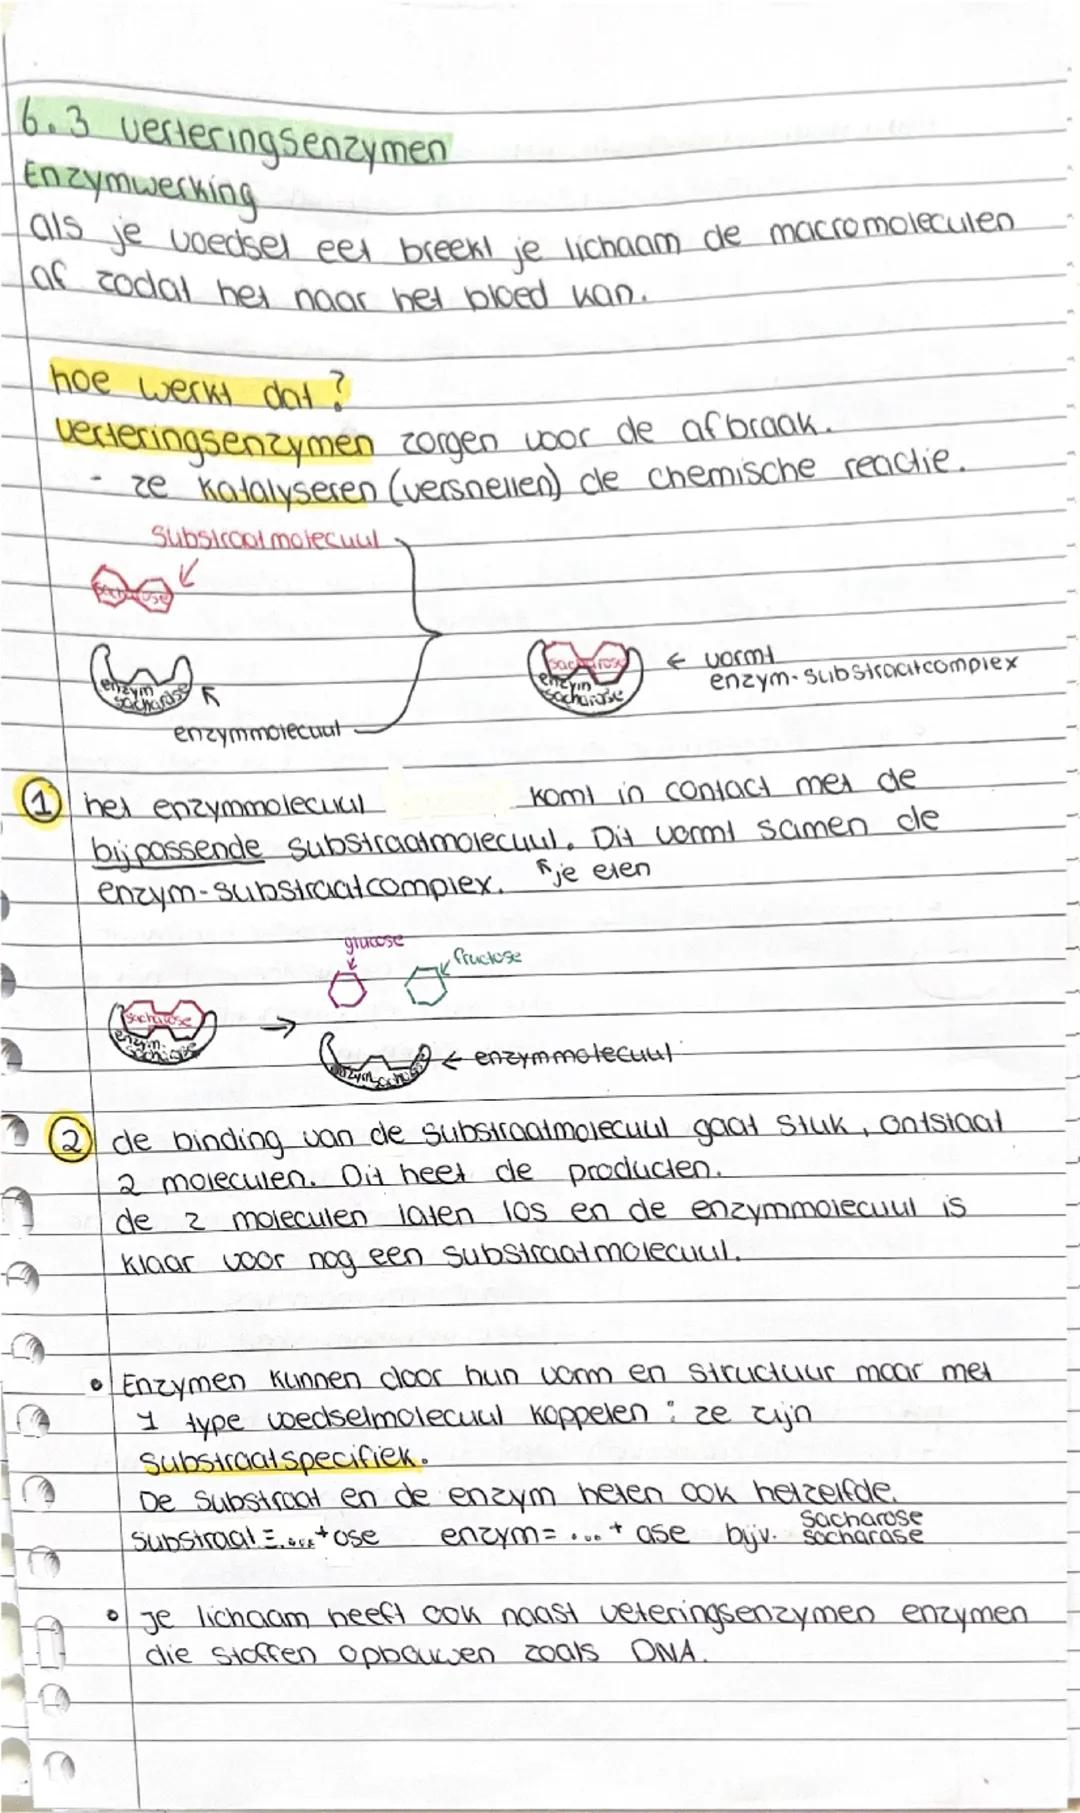 6.3 verteringsenzymen
Enzymwerking
als je voedsel eet breekt je lichaam de macromoleculen
af zodat het naar het bloed kan.
hoe werkt dat?
verteringsenzymen zorgen voor de afbraak.
- ze katalyseren (versnellen) de chemische reactie.
Substraatmolecuul
sacharose
enzym
sacharase
enzymmolecuul
sacharose
enzym
sacharase
← vormt
enzym-substraatcomplex
1 het enzymmolecuul komt in contact met de
bijpassende substraatmolecuul. Dit vormt samen de
enzym-substraatcomplex. ↖je eten
glucose
fructose
sacharose
enzym
sacharase
→
enzym sacharase
← enzymmolecuul
2 de binding van de substraatmolecuul gaat stuk, ontstaat
2 moleculen. Dit heet de producten.
de 2 moleculen laten los en de enzymmolecuul is
klaar voor nog een substraatmolecuul.
• Enzymen kunnen door hun vorm en structuur maar met
1 type voedselmolecuul koppelen: ze zijn
substraatspecifiek.
De substraat en de enzym heten ook hetzelfde.
substraat = ...+ ose enzym = ... + ase bijv. sacharose
sacharase
• je lichaam heeft ook naast veteringsenzymen enzymen
die stoffen opbouwen zoals DNA.